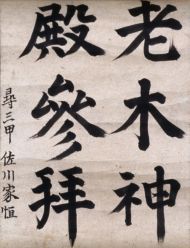 老木神
殿參拜
尋三甲 佐川家恒